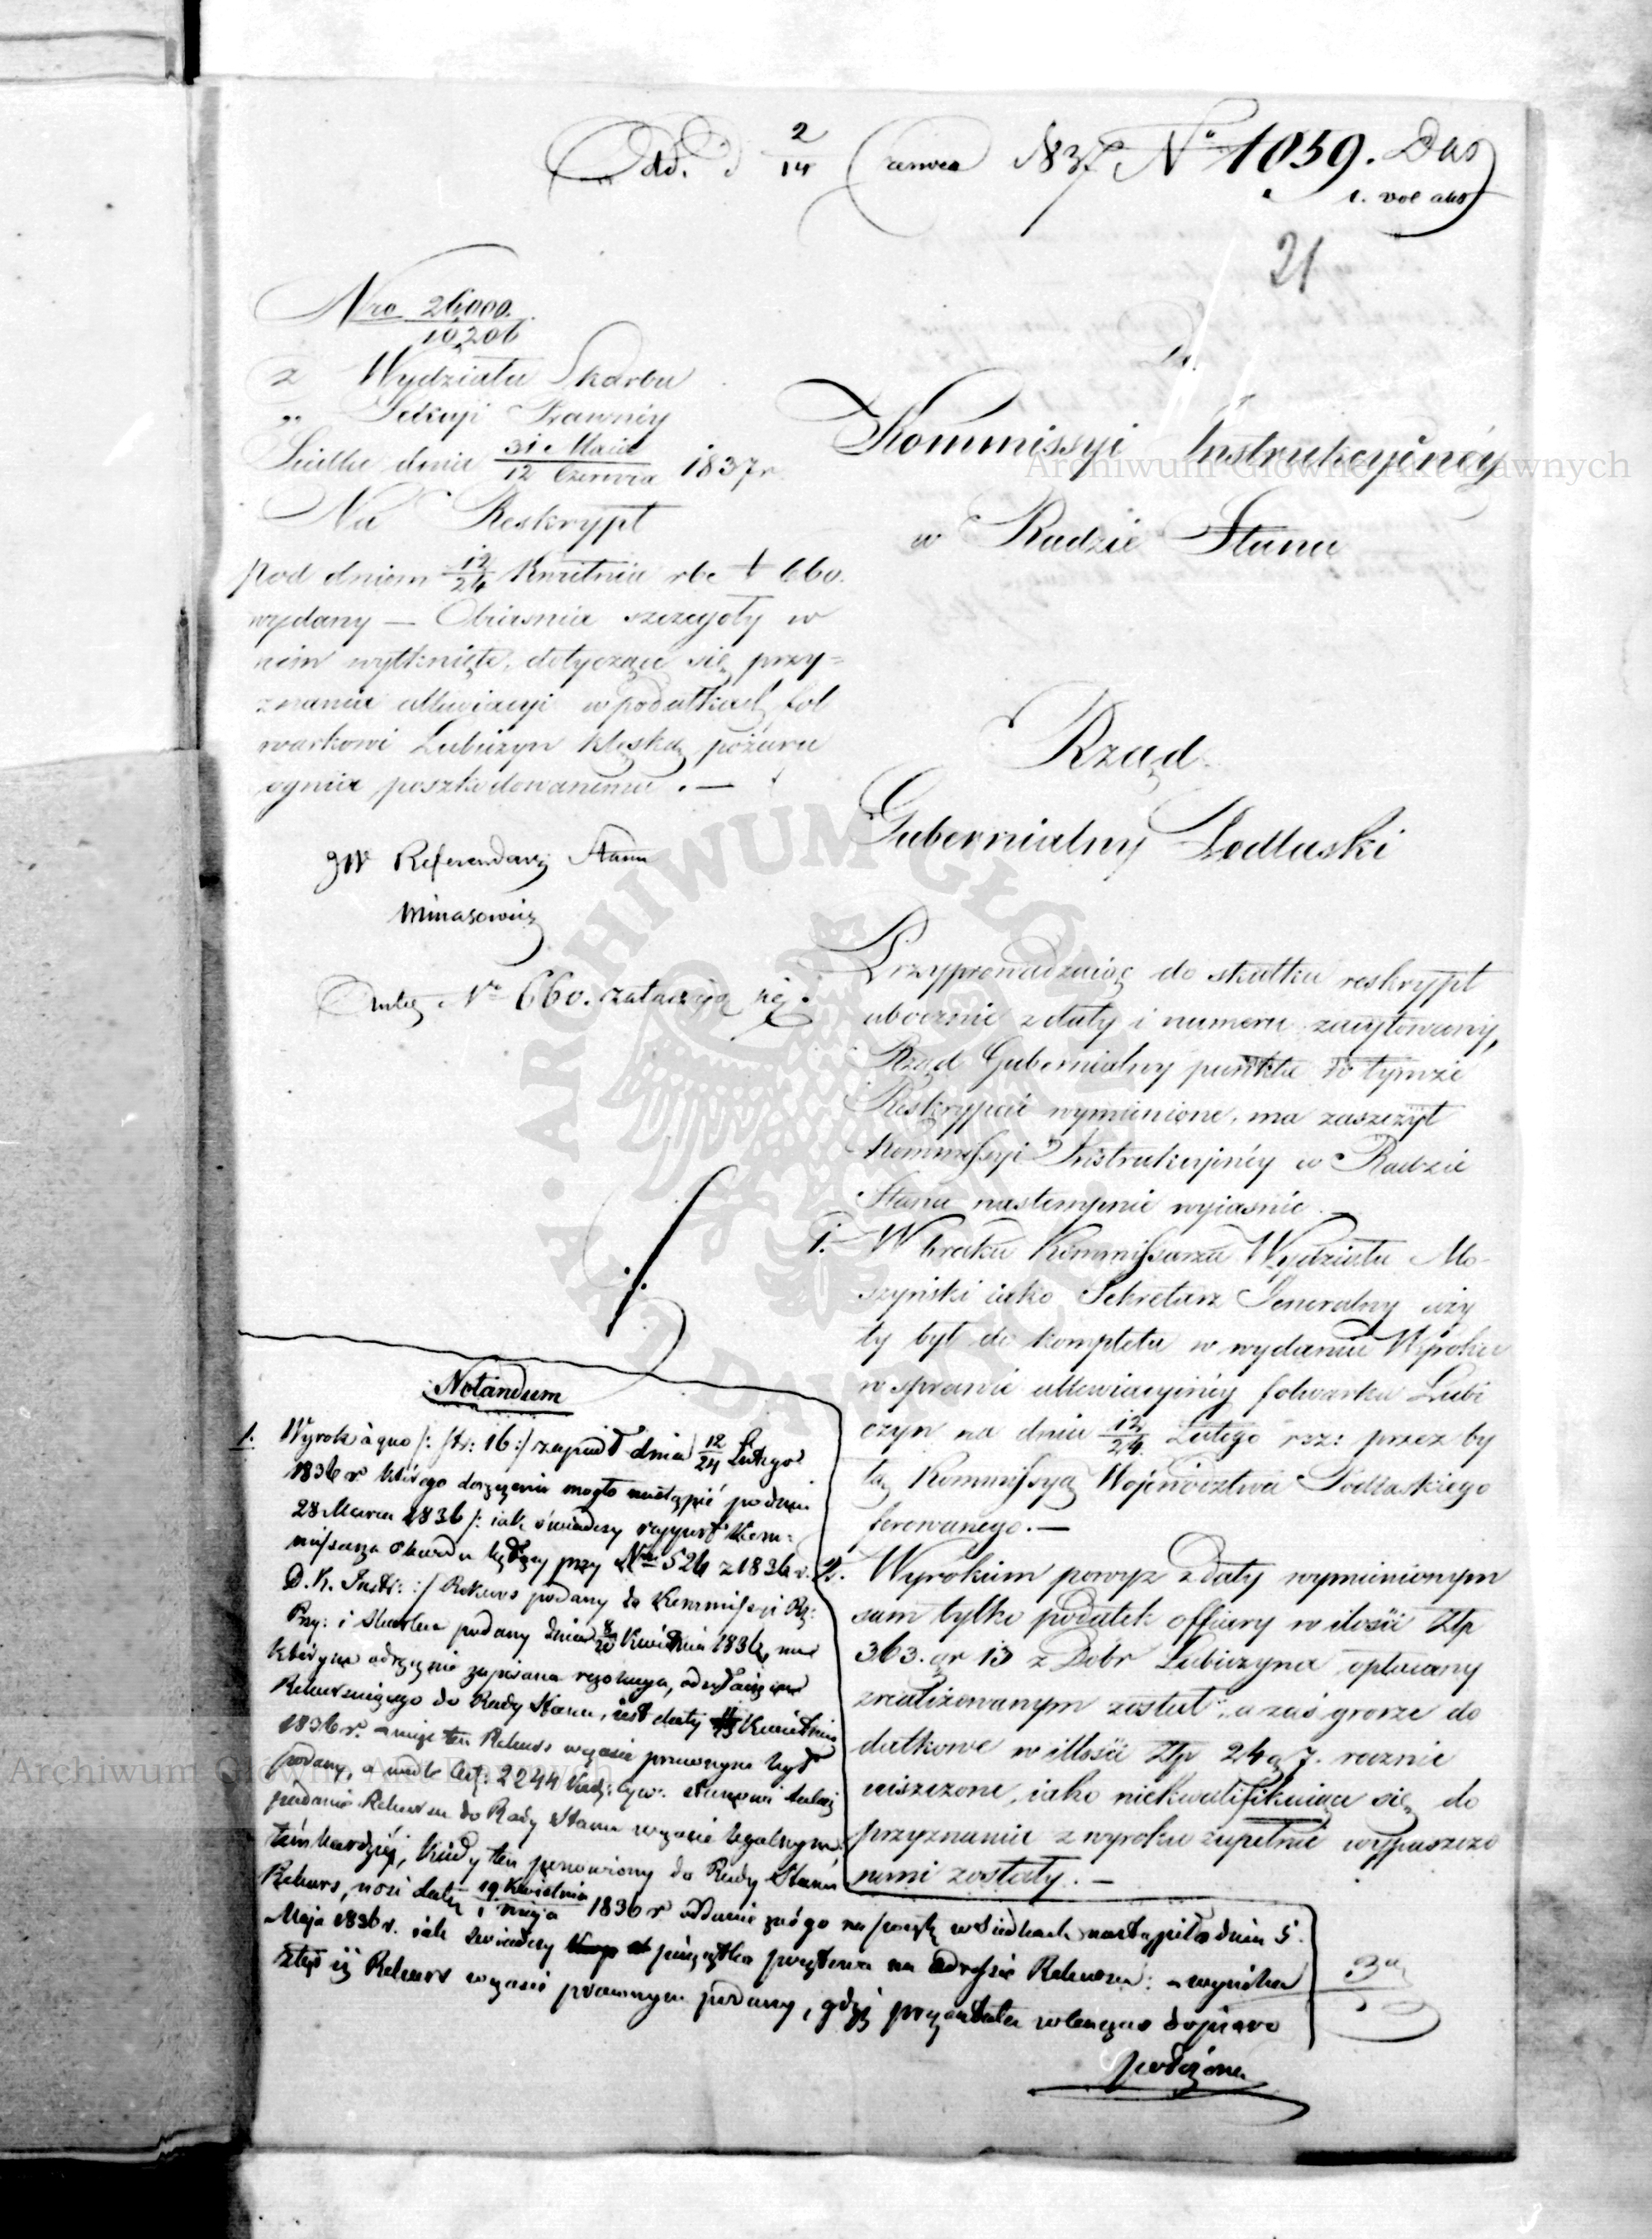 Odd. d 2/14 Czerwca 1837 No 1059. Das
1. vol akt
21
Nro 26000.
10206
z Wydziału Skarbu
„ Sekcyi Prawnéy
Siedlce dnia 31 Maia/12 Czerwca 1837 r.
Na Reskrypt
pod dniem 12/24 Kwietnia rbe 660.
wydany — Obiasnia szczegoły w
nim wytknięte, dotyczące się przy=
znania allewiacyi w podatkach fol
warkowi Lubiczyn klęską pożaru
ognia poszkodowanemu. —
JW Referendarz Stanu
Minasowicz
No 660. załączyć się.
Do
Kommissyi Instrukcyinéy
w Radzie Stanu
Rząd
Gubernialny Podlaski
Przyprowadzaiąc do skutku reskrypt
ubocznie z daty i numeru zacytowany,
Rząd Gubernialny punkta w tymże
Reskrypcie wymienione, ma zaszczyt
Kommissyi Instrukcyinéy w Radzie
Stanu nastempnie wyiasnić —
1. W braku Kommissarza Wydziału Mo-
szyński iako Sekretarz Generalny uży
ty był do kompletu w wydaniu Wyroku
w sprawie allewiacyinéy folwarku Lubi
czyn na dniu 12/24 Lutego rz: przez by
łą Kommissyą Woiewództwa Podlaskiego
ferowanego. —
2. Wyrokiem powyż z daty wymienionym
sam tylko podatek offiary w ilości Złp
363. gr 13 z Dobr Lubiczyna opłacany
zrealizowanym został, a zaś grosze do
datkowe w illości Złp 24 g 7. rocznie
uiszczone, iako niekwalifikuiące się do
przyznania z wyroku zupełnie wypuszczo
nemi zostały. —
Notandum
1. Wyrok à quo /: str: 16 :/ zapadł dnia 12/24 Lutego
1836 r którego doręczenie mogło nastąpić po dniu
28 Marca 1836 /: iak świadczy rapport Kom=
missarza Obwodu będący przy Nrze 526 z 1836 r.
D. K. Instr: :/ Rekurs podany do Kommissyi Rz:
Prz: i Skarbu podany dnia 8/20 Kwietnia 1836, na
którym odręcznie zapisana rezolucya, odsyłaiąca
Rekursuiącego do Rady Stanu, iest daty Kwietnia
1836 r. a więc ten Rekurs w czasie prawnym był
podany, a wedle Art: 2244 Kod: Cyw: stanowi także
podanie Rekursu do Rady Stanu w czasie legalnym
tém bardziéj, kiedy ten ponowiony do Rady Stanu
Rekurs, nosi datę 19 Kwietnia/1 Maja 1836 r oddanie zaś go na pocztę w Siedlcach nastąpiło dnia 5
Maja 1836 r. iak świadczy pieczątka pocztowa na Adressie Rekursu: a wynika
ztąd iż Rekurs w czasie prawnym podany, gdzi prezentata wówczas dopiero
położona